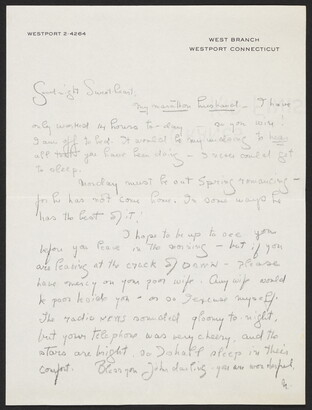 WESTPORT 2-4284
WEST BRANCH
WESTPORT CONNECTICUT
Goodnight Sweetheart:
My marathon husband – I have
only worked in hours to-day on you wire!
I am off to bed. It would be my undoing to hear
all you have been doing – I never could get
to sleep.
Monday must be out Spring romancing –
for he has not come home. In some ways he
has the best of it!
I hope to be up to see you
before you leave in the morning – but if you
are leaving at the crack of DAWN – please
have mercy on your poor wife. Any wife would
be poor beside you – or so I excuse myself.
The radio news sounded gloomy to-night,
but your telephone was very cheery, and the
stars are bright, so I shall sleep in their
comfort. Bless you John darling – you are wonderful,